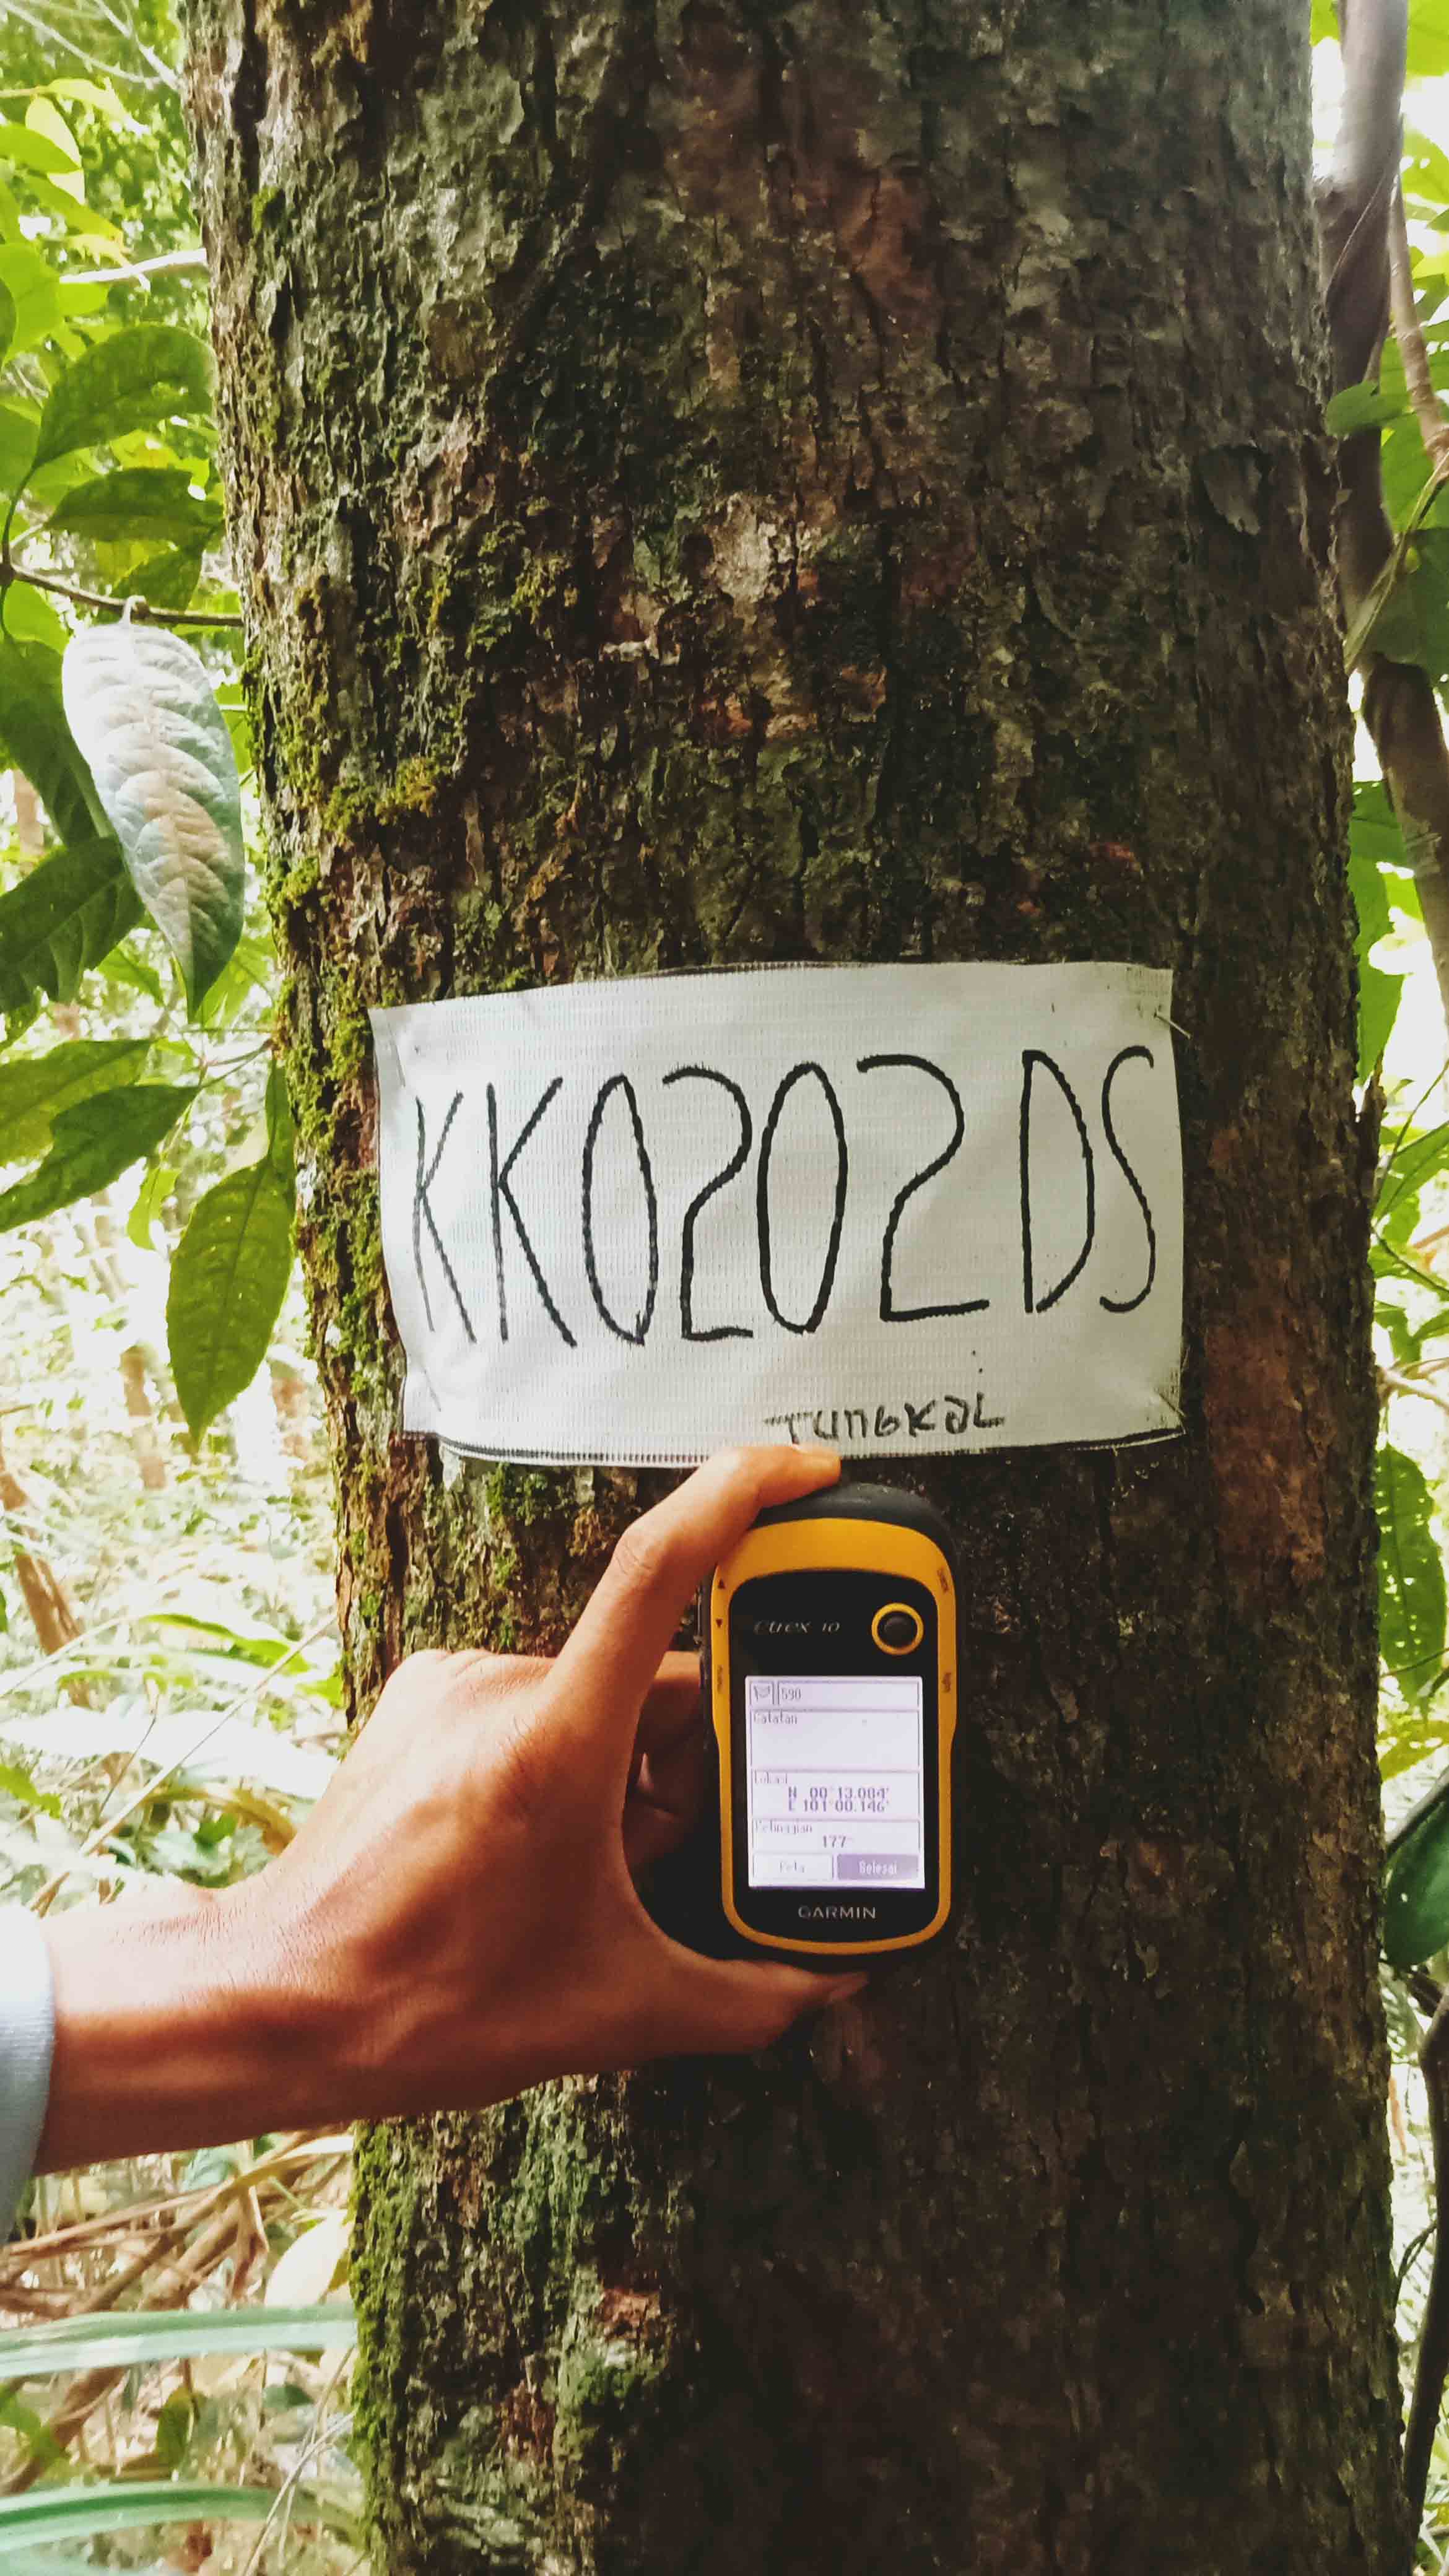 KK0202DS
TUNGKAL
etrex 10
590
Catatan
Lokasi
N 00°13.084'
E 101°00.146'
Ketinggian
177
Peta
Selesai
GARMIN